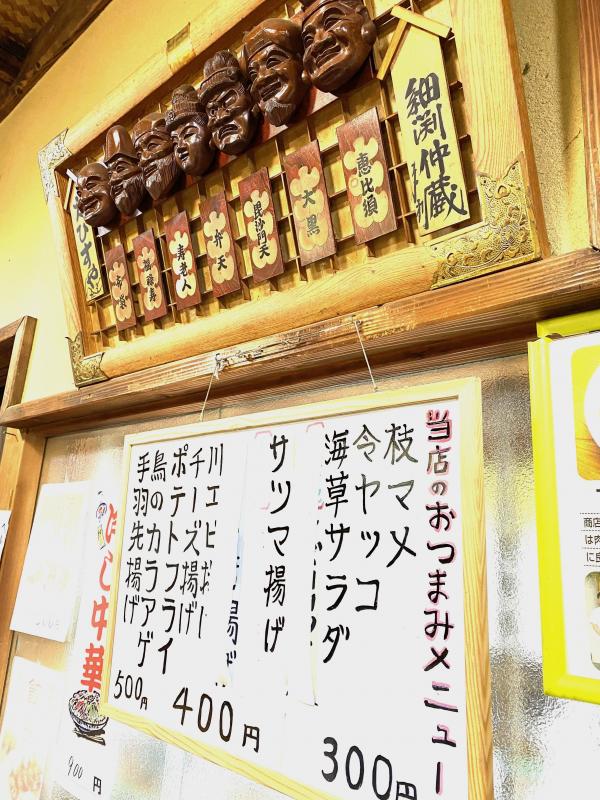 細渕仲蔵
恵比須
大黒
毘沙門天
弁天
寿老人
福禄寿
布袋
当店のおつまみメニュー
枝マメ
令ヤッコ
海草サラダ
300円
サツマ揚げ
400円
川エビ
チーズ揚げ
ポテトフライ
鳥のカラアゲ
手羽先揚げ
500円
冷し中華
900円
商店
は肉